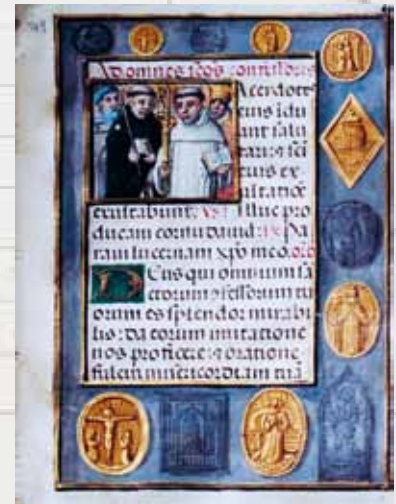 Ad omnes scos confessores
acerdotes
eius idu
ant salu
tari: ⁊ sci
eius ex
ultatioe
exultabunt: vs Illuc pro
ducam cornu dauid: R Pa
raui lucernam xpo meo. oro
Deus qui omnium sa
ctorum ⁊fessorum tu
orum es splendor mirabi
lis: da eorum imitatione
nos proficere: ⁊ oratione
fidem misericordiam tuā